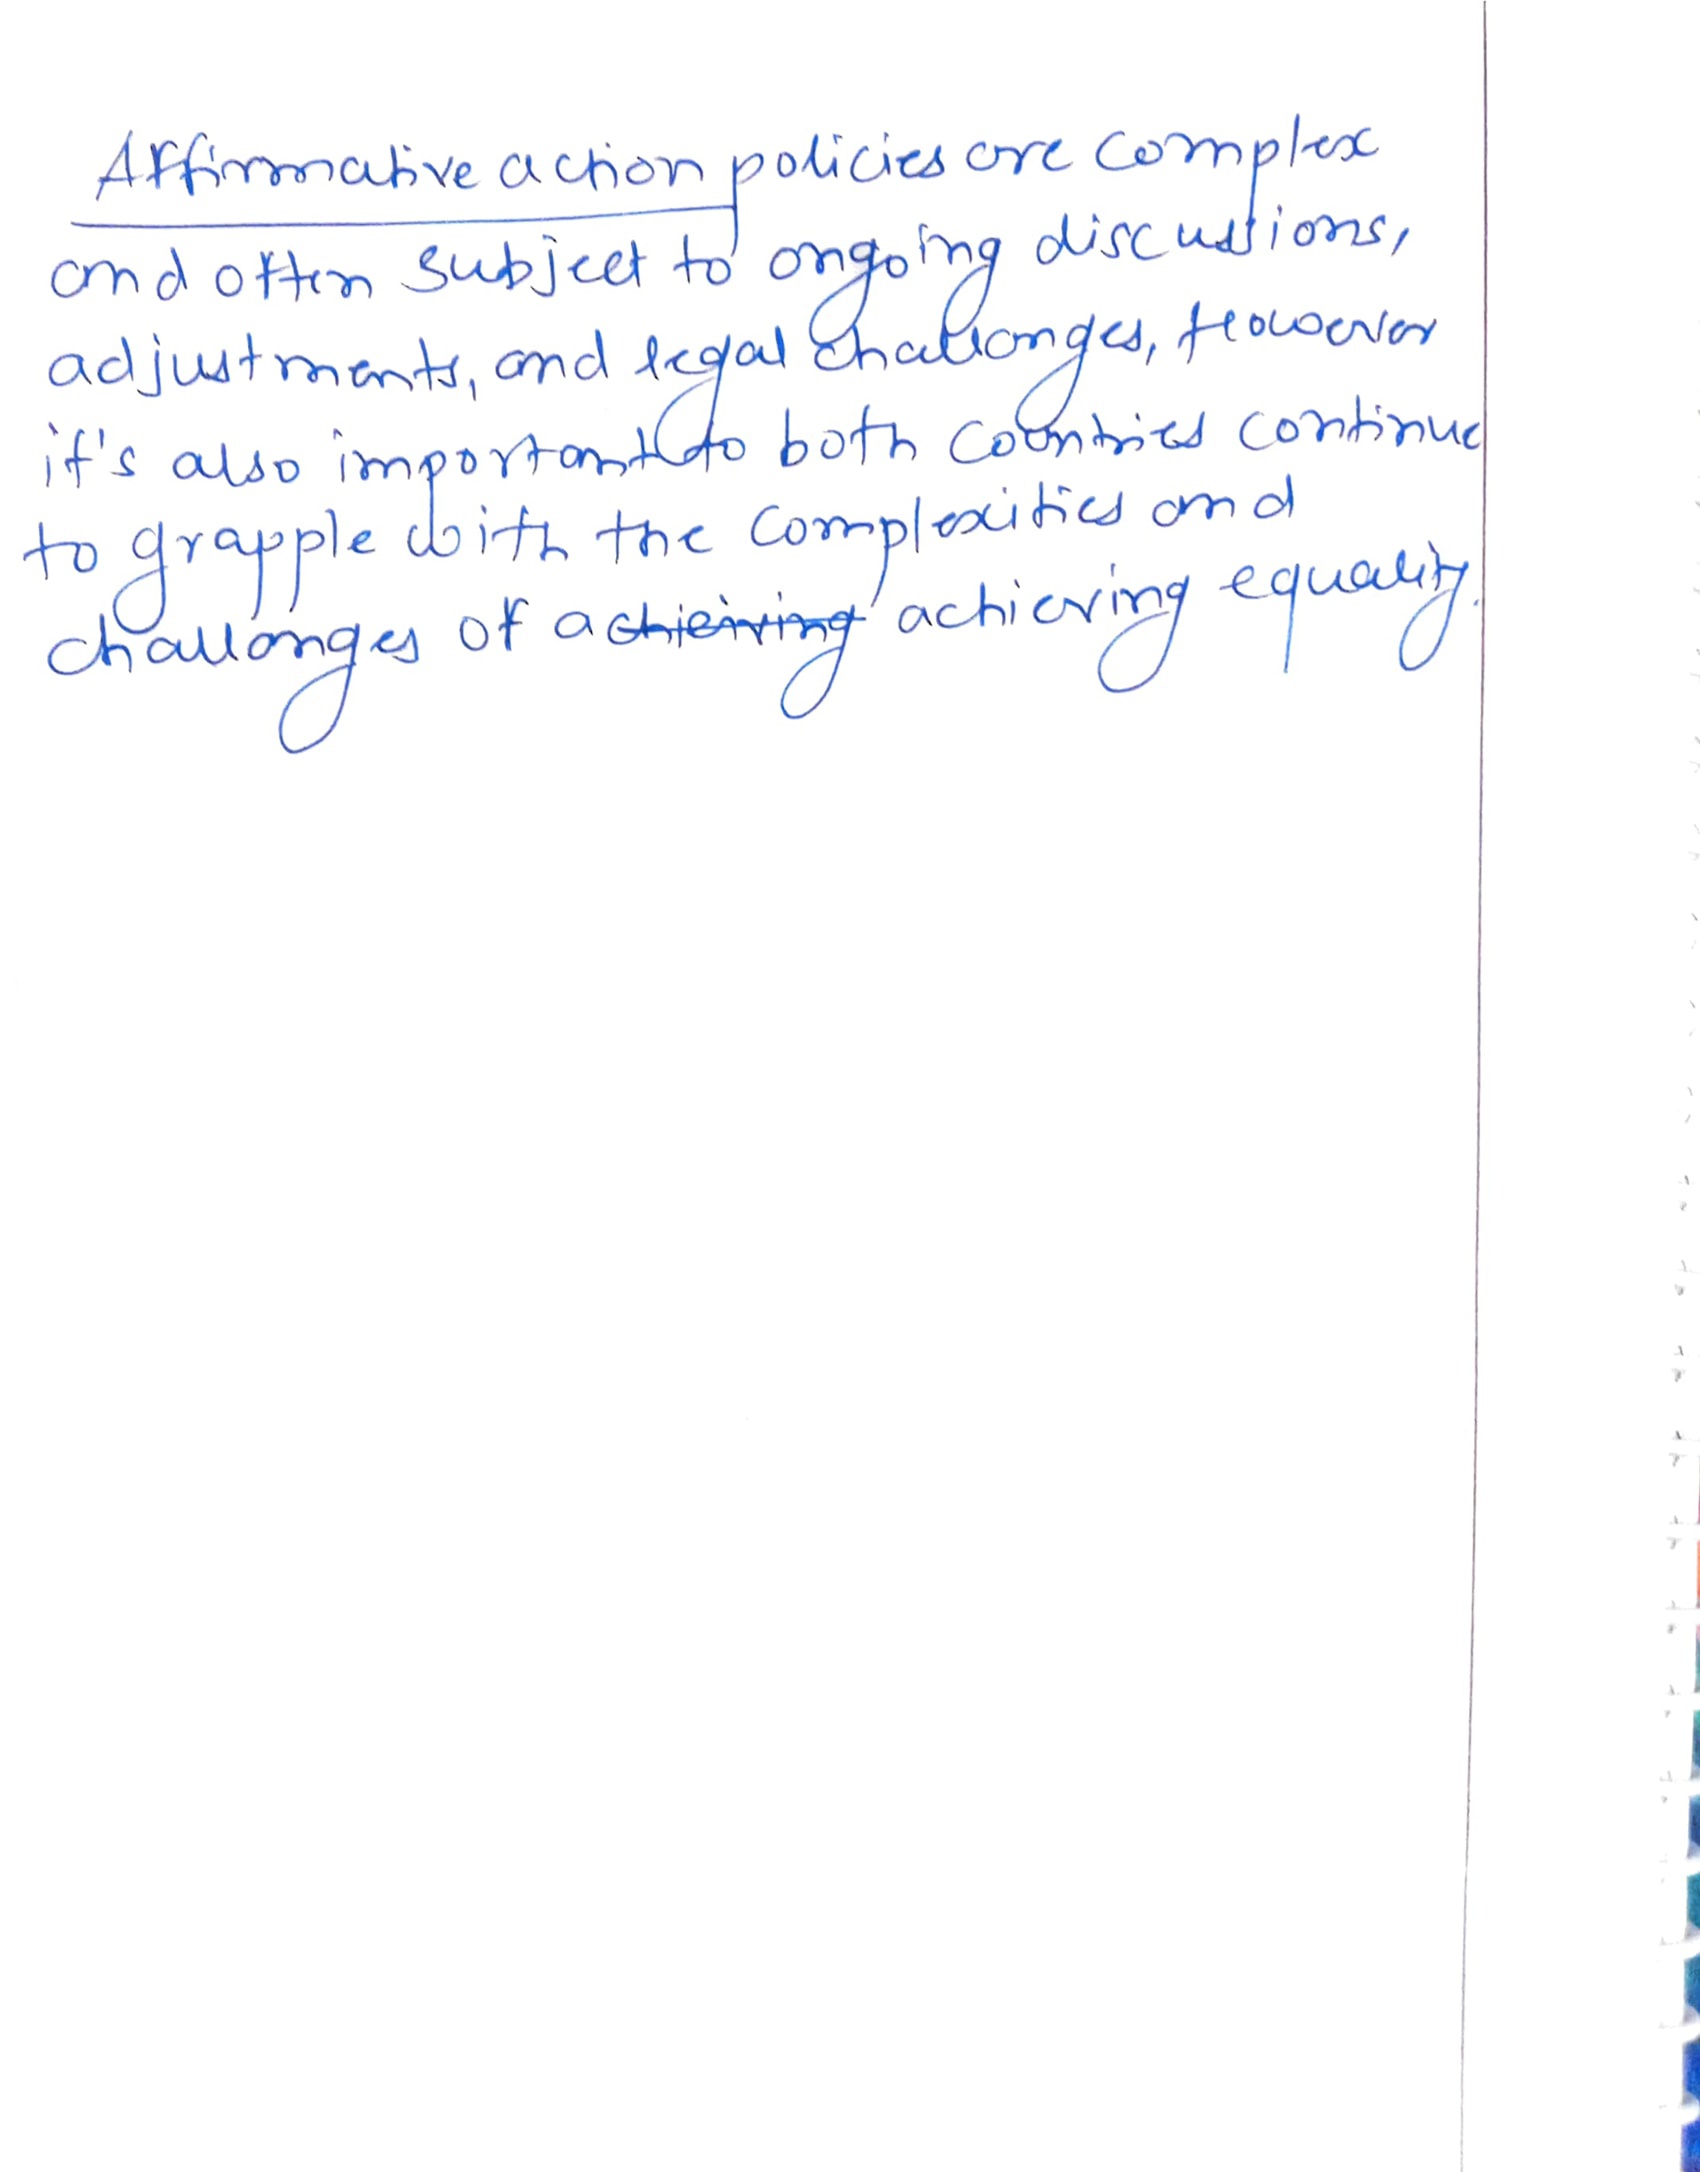 Affirmative action policies are complex
and often subject to ongoing discussions,
adjustments, and legal challanges, However
it's also important to both countries continue
to grapple with the complexities and
challanges of achieiving achieving equality.